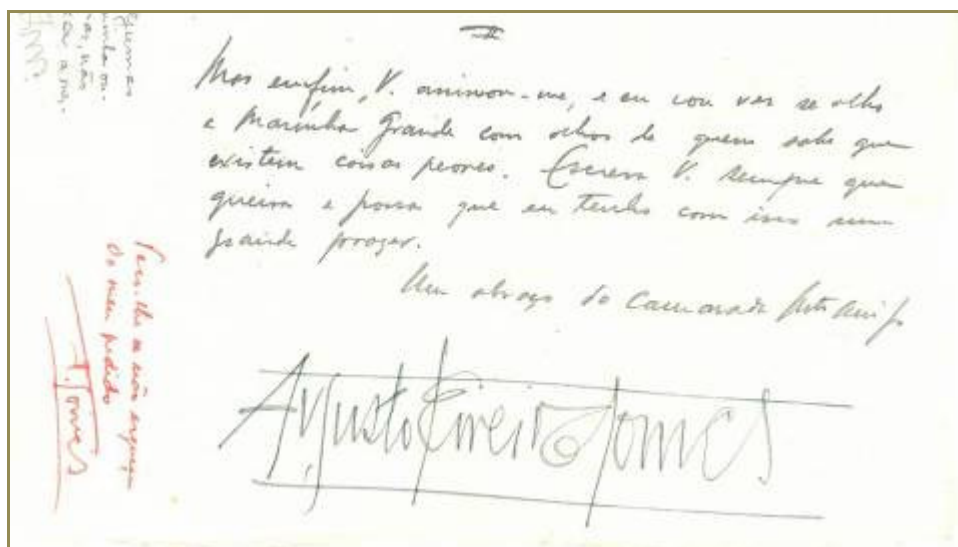 Mas enfim, V. animou-me, e eu vou ver se olho
a Marinha Grande com olhos de quem sabe que
existem coisas peores. Escreva V. sempre que
queira e possa que eu tenho com isso um
grande prazer.
Um abraço do Camarada
Augusto Gomes
não esqueça
do meu pedido
A. Gomes